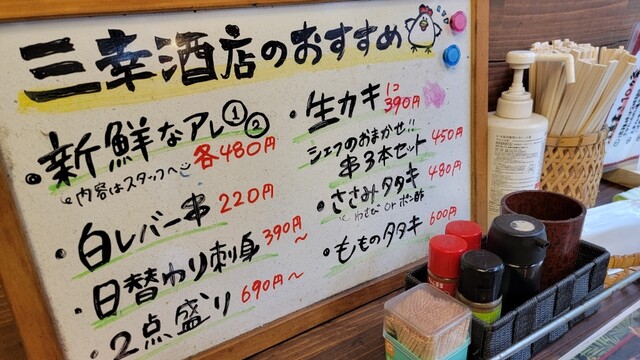 三幸酒店のおすすめ
・新鮮なアレ①②
各480円
内容はスタッフへ
・白レバー串 220円
・日替わり刺身 390円～
・2点盛り 690円～
・生カキ 1コ 390円
シェフのおまかせ!!
串3本セット 450円
・ささみタタキ 480円
わさび or ポン酢
・もものタタキ 600円